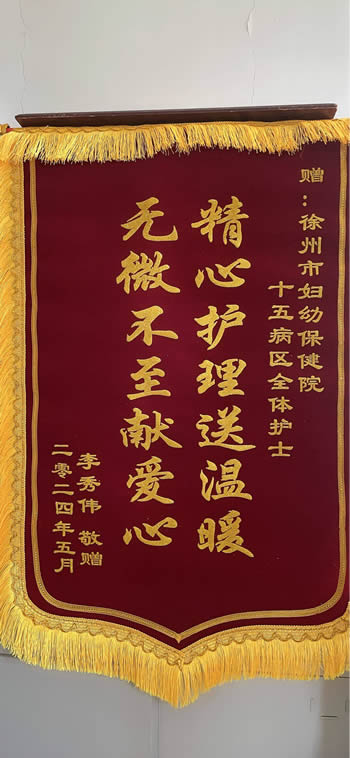 赠：徐州市妇幼保健院
十五病区全体护士
精心护理送温暖
无微不至献爱心
李秀伟 敬赠
二零二四年五月